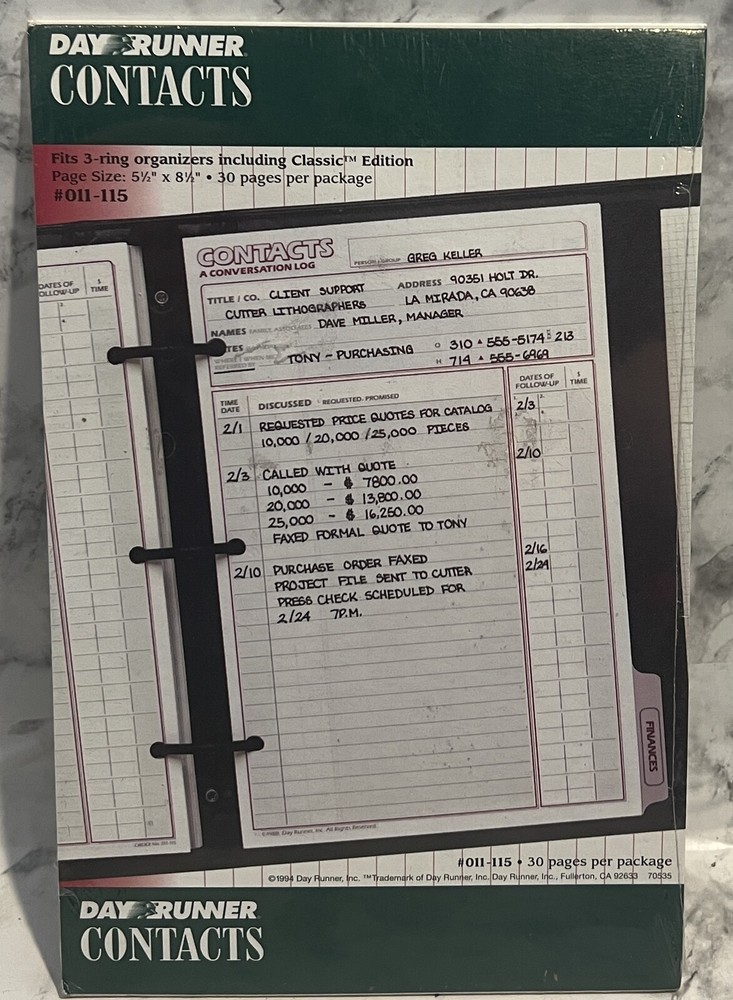 DAY RUNNER
CONTACTS
Fits 3-ring organizers including Classic™ Edition
Page Size: 5½" x 8½" • 30 pages per package
#011-115
DATES OF
FOLLOW-UP
$
TIME
CONTACTS
A CONVERSATION LOG
PERSON / GROUP GREG KELLER
TITLE / CO. CLIENT SUPPORT
ADDRESS 90351 HOLT DR.
CUTTER LITHOGRAPHERS
LA MIRADA, CA 90638
NAMES DAVE MILLER, MANAGER
NOTES
TONY - PURCHASING
O 310 • 555-5174 213
H 714 • 555-6969
TIME
DATE
DISCUSSED REQUESTED, PROMISED
DATES OF
FOLLOW-UP
$
TIME
2/1 REQUESTED PRICE QUOTES FOR CATALOG
2/3
10,000 / 20,000 / 25,000 PIECES
2/3 CALLED WITH QUOTE
2/10
10,000 - $ 7800.00
20,000 - $ 13,800.00
25,000 - $ 16,250.00
FAXED FORMAL QUOTE TO TONY
2/10 PURCHASE ORDER FAXED
2/16
PROJECT FILE SENT TO CUTTER
2/24
PRESS CHECK SCHEDULED FOR
2/24 7P.M.
FINANCES
Day Runner, Inc. All Rights Reserved.
#011-115 • 30 pages per package
©1994 Day Runner, Inc. ™Trademark of Day Runner, Inc. Day Runner, Inc., Fullerton, CA 92633 70535
DAY RUNNER
CONTACTS